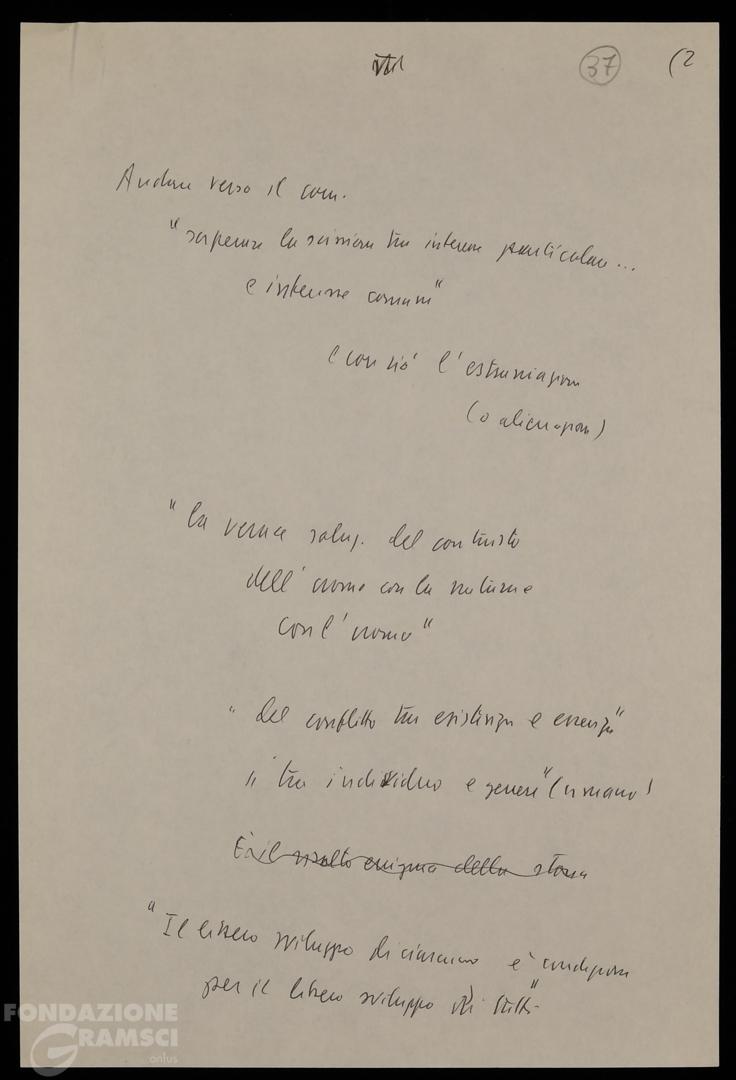 37
(2
Andare verso il com.
"superare la scissione tra interesse particolare...
e interesse comune"
e con ciò l'estraniazione
(o alienazione)
"la verace soluz. del contrasto
dell'uomo con la natura e
con l'uomo"
"del conflitto tra esistenza e essenza"
"tra individuo e genere" (umano)
È il risolto enigma della storia
"Il libero sviluppo di ciascuno è condizione
per il libero sviluppo di tutti"
FONDAZIONE
GRAMSCI
onlus